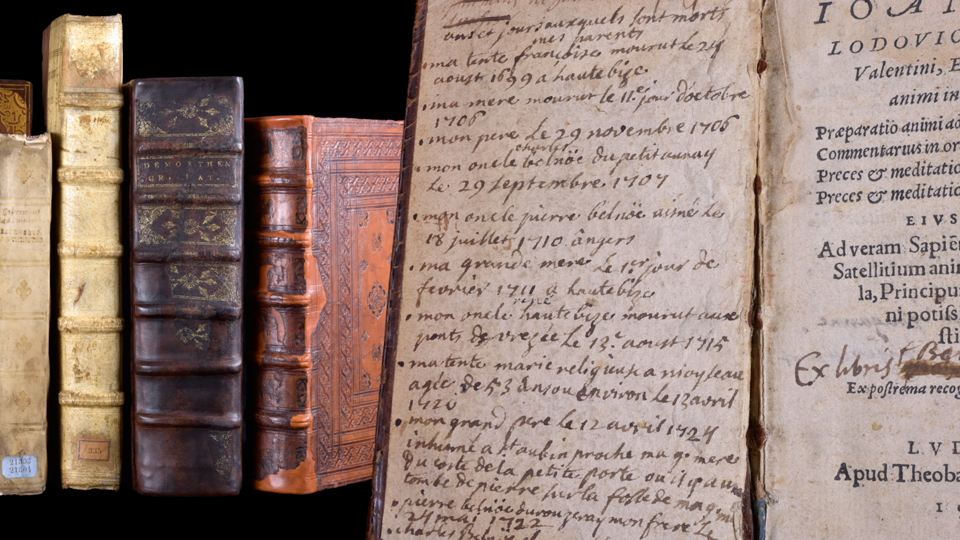 DEMOSTHEN
GR. LAT.
335
21333
ans et jours auxquels sont morts
mes parents
ma tente françoise mourut le 24
aoust 1699 a hautebize
ma mere mourut le 11e jour d'octobre
1706
mon pere le 29 novembre 1706
charles
mon oncle belnöe du petit aunay
le 29 septembre 1707
mon oncle pierre belnöe aisné le
18 juillet 1710 ângers
ma grande mere le 1er jour de
fevrier 1711 a hautebize
rené
mon oncle hautebize mourut aux
ponts de le 13e aoust 1715
ma tente marie religieuse a
agée de 53 ans ou environ le 12 avril
mon grand pere le 12 avril 1724
inhumé a st aubin proche ma gd mere
du coste de la petite porte ou il y a une
tombe de pierre sur la fosse de ma gd m
pierre belnöe mon frere le
24 mai 1722
charles
IOAN
LODOVIC
Valentini, E
animi in
Præparatio animi ad
Commentarius in or
Preces & meditatio
Preces & meditatio
EIVS
Ad veram Sapiē
Satellitium anim
la, Principum
ni potiss
sti
Ex libris
Ex postrema recog
LVD
Apud Theoba